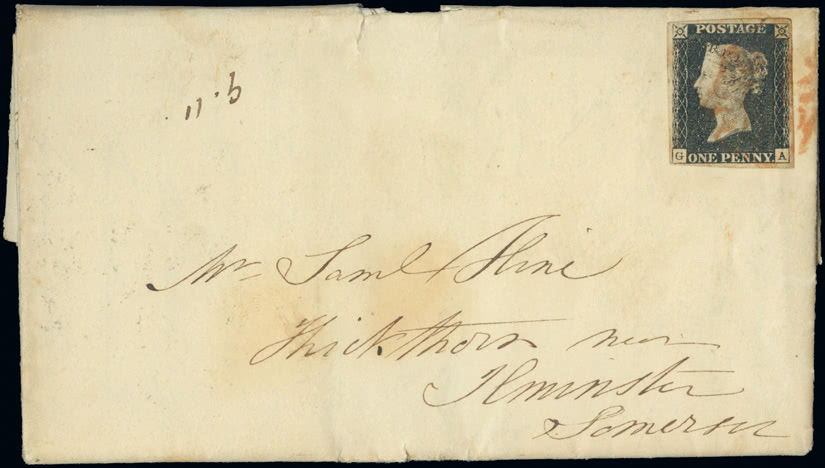 POSTAGE
G A
ONE PENNY.
Mr Saml Hine
Thickthorn near
Ilminster
Somerset